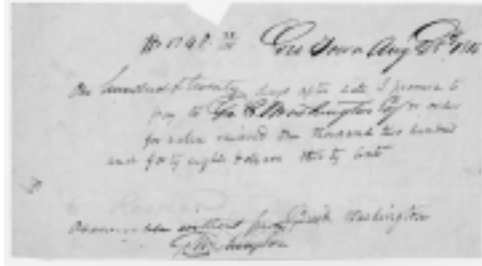 Geo Town Aug
One hundred & twenty days after date I promise to
pay to Geo C Washington Esq or order
for value received One thousand two hundred
and forty eight dollars thirty cents
Washington
without
Washington